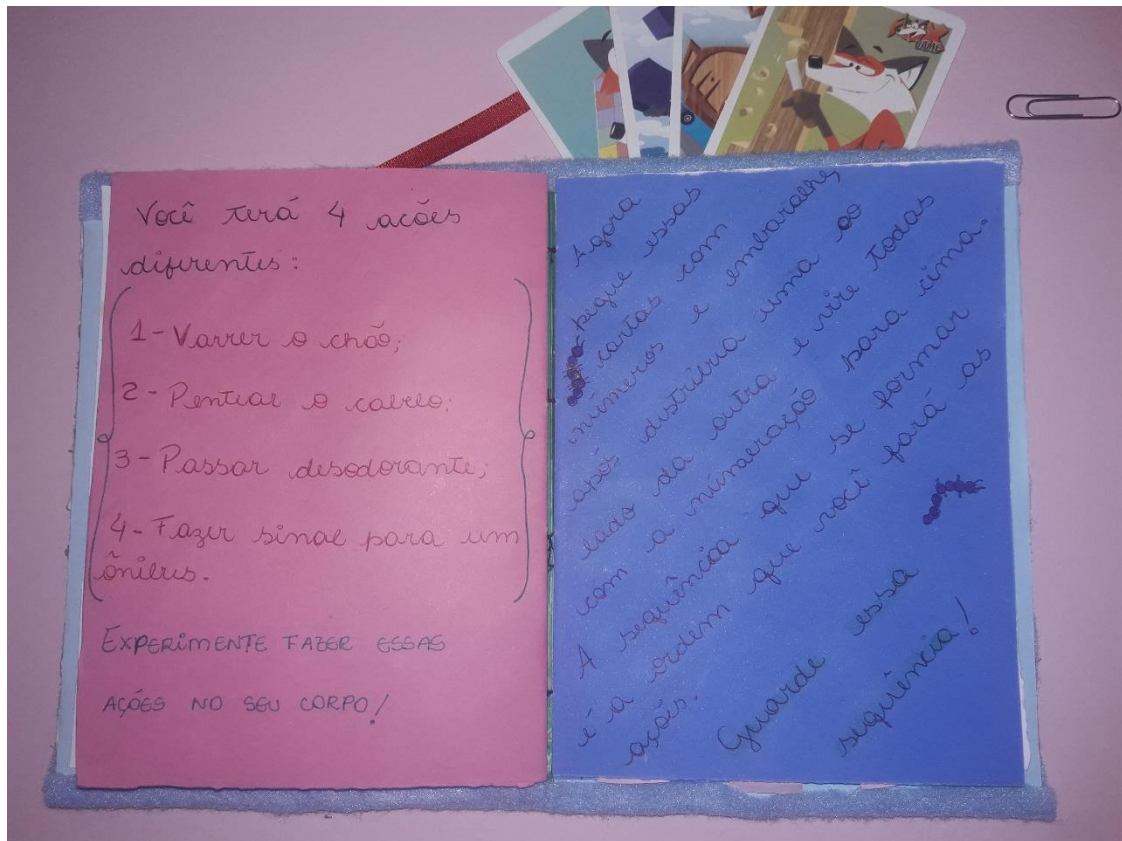 FOX
GAME
Você terá 4 acões
diferentes:
1 - Varrer o chão;
2 - Pentear o cabelo;
3 - Passar desodorante;
4 - Fazer sinal para um
ônibus.
EXPERIMENTE FAZER ESSAS
AÇÕES NO SEU CORPO!
Agora
pegue essas
cartas com
números e embaralhe,
após distribua uma ao
lado da outra e vire todas
com a númeração para cima.
A sequência que se formar
é a ordem que você fará as
ações.
Guarde essa
sequência!